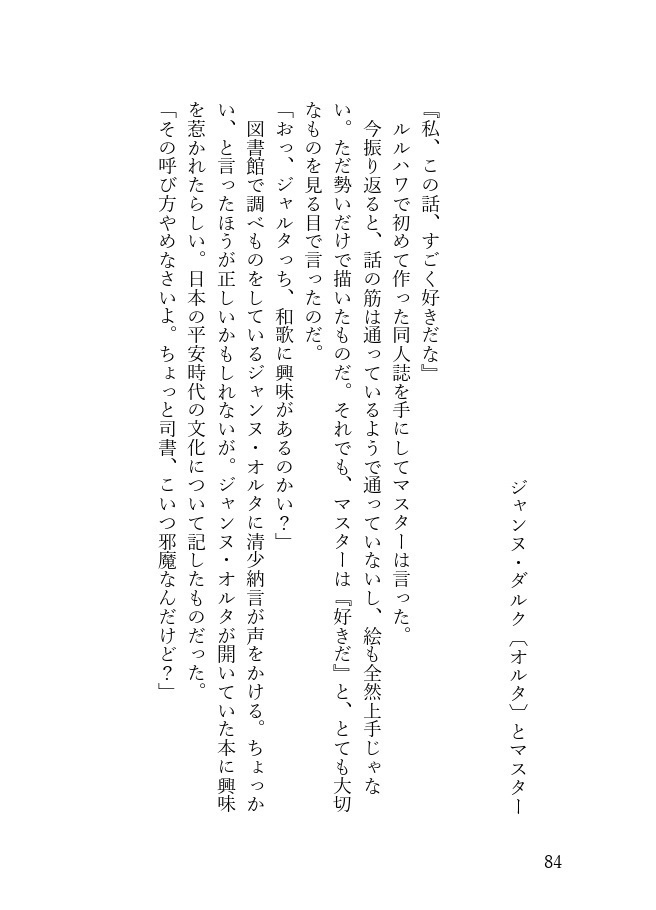 ジャンヌ・ダルク〔オルタ〕とマスター
『私、この話、すごく好きだな』
ルルハワで初めて作った同人誌を手にしてマスターは言った。
今振り返ると、話の筋は通っているようで通っていないし、絵も全然上手じゃな
い。ただ勢いだけで描いたものだ。それでも、マスターは『好きだ』と、とても大切
なものを見る目で言ったのだ。
「おっ、ジャルタっち、和歌に興味があるのかい？」
図書館で調べものをしているジャンヌ・オルタに清少納言が声をかける。ちょっか
い、と言ったほうが正しいかもしれないが。ジャンヌ・オルタが開いていた本に興味
を惹かれたらしい。日本の平安時代の文化について記したものだった。
「その呼び方やめなさいよ。ちょっと司書、こいつ邪魔なんだけど？」
84